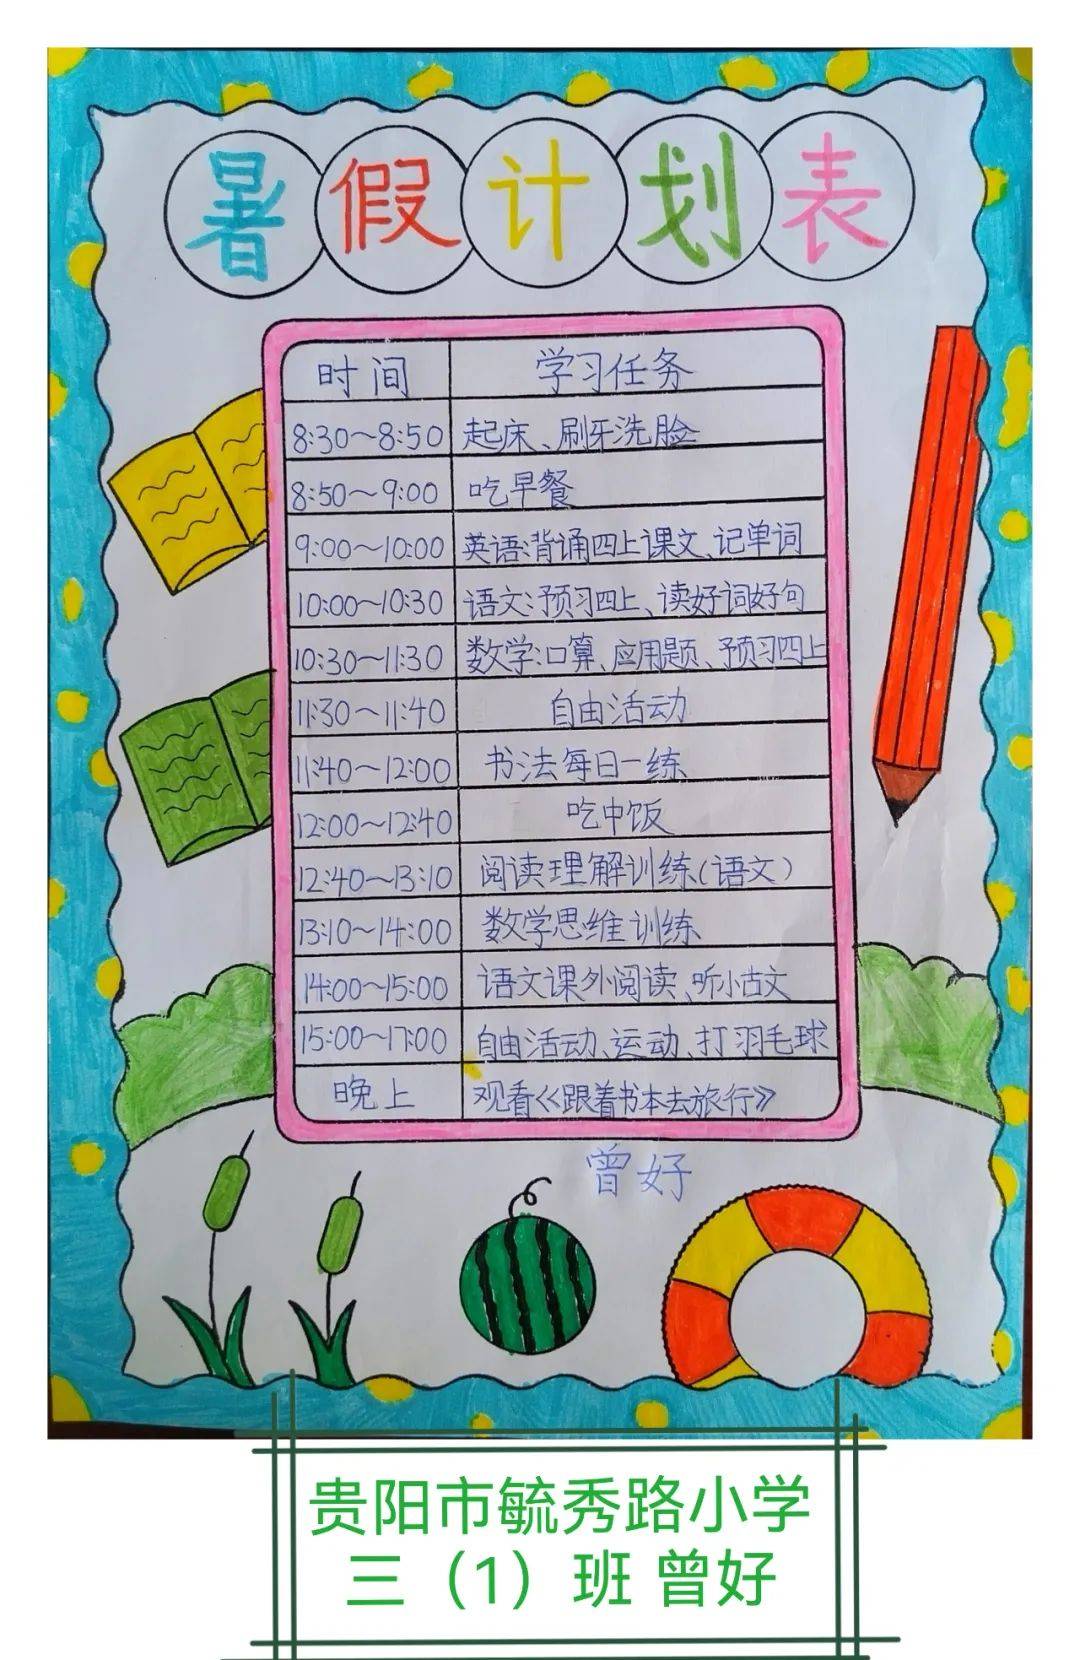 暑假计划表
时间 学习任务
8:30～8:50 起床、刷牙洗脸
8:50～9:00 吃早餐
9:00～10:00 英语:背诵四上课文、记单词
10:00～10:30 语文:预习四上、读好词好句
10:30～11:30 数学:口算、应用题、预习四上
11:30～11:40 自由活动
11:40～12:00 书法每日一练
12:00～12:40 吃中饭
12:40～13:10 阅读理解训练(语文)
13:10～14:00 数学思维训练
14:00～15:00 语文课外阅读、听小古文
15:00～17:00 自由活动、运动、打羽毛球
晚上 观看《跟着书本去旅行》
曾好
贵阳市毓秀路小学
三（1）班 曾好